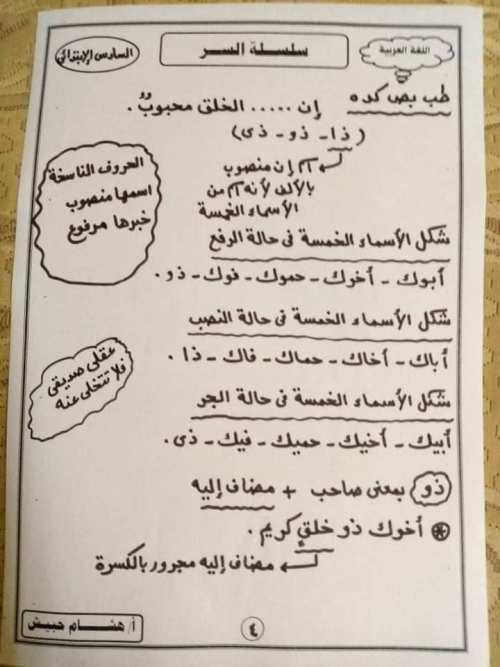 اللغة العربية
سلسلة السر
السادس الإبتدائى
طب بص كده
إن ..... الخلق محبوبٌ .
(ذا - ذو - ذى)
اسم إن منصوب
بالألف لأنه اسم من
الأسماء الخمسة
الحروف الناسخة
اسمها منصوب
خبرها مرفوع
شكل الأسماء الخمسة فى حالة الرفع
أبوك - أخوك - حموك - فوك - ذو .
شكل الأسماء الخمسة فى حالة النصب
أباك - أخاك - حماك - فاك - ذا .
عقلى صديقى
فلا تتخلى عنه
شكل الأسماء الخمسة فى حالة الجر
أبيك - أخيك - حميك - فيك - ذى .
ذو بمعنى صاحب + مضاف إليه
أخوك ذو خلقٍ كريم .
مضاف إليه مجرور بالكسرة
٤
أ/ هشام حبيش